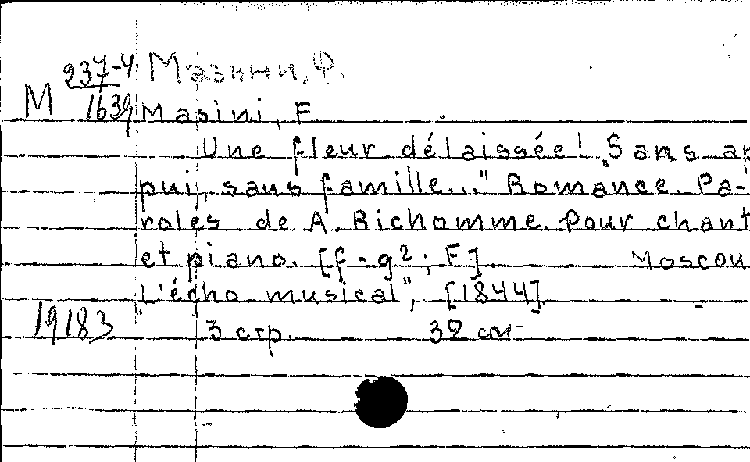 М 237-4/1639 Мазини, Ф.
Masini, F.
Une fleur délaissée! „Sans ap
pui, sans famille..." Romance. Pa-
roles de A. Richomme. Pour chant
et piano. [f - g²; F] Moscou
„L'écho musical", [1844]
19183 3 стр. 32 см